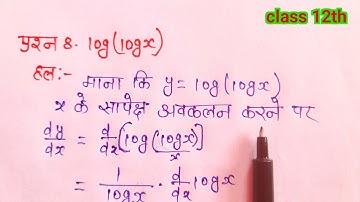 class 12th
प्रश्न 8. log(logx)
हल:-
माना कि y = log(logx)
x के सापेक्ष अवकलन करने पर
dy/dx = d/dx [log(logx)]
x
= 1/logx · d/dx logx